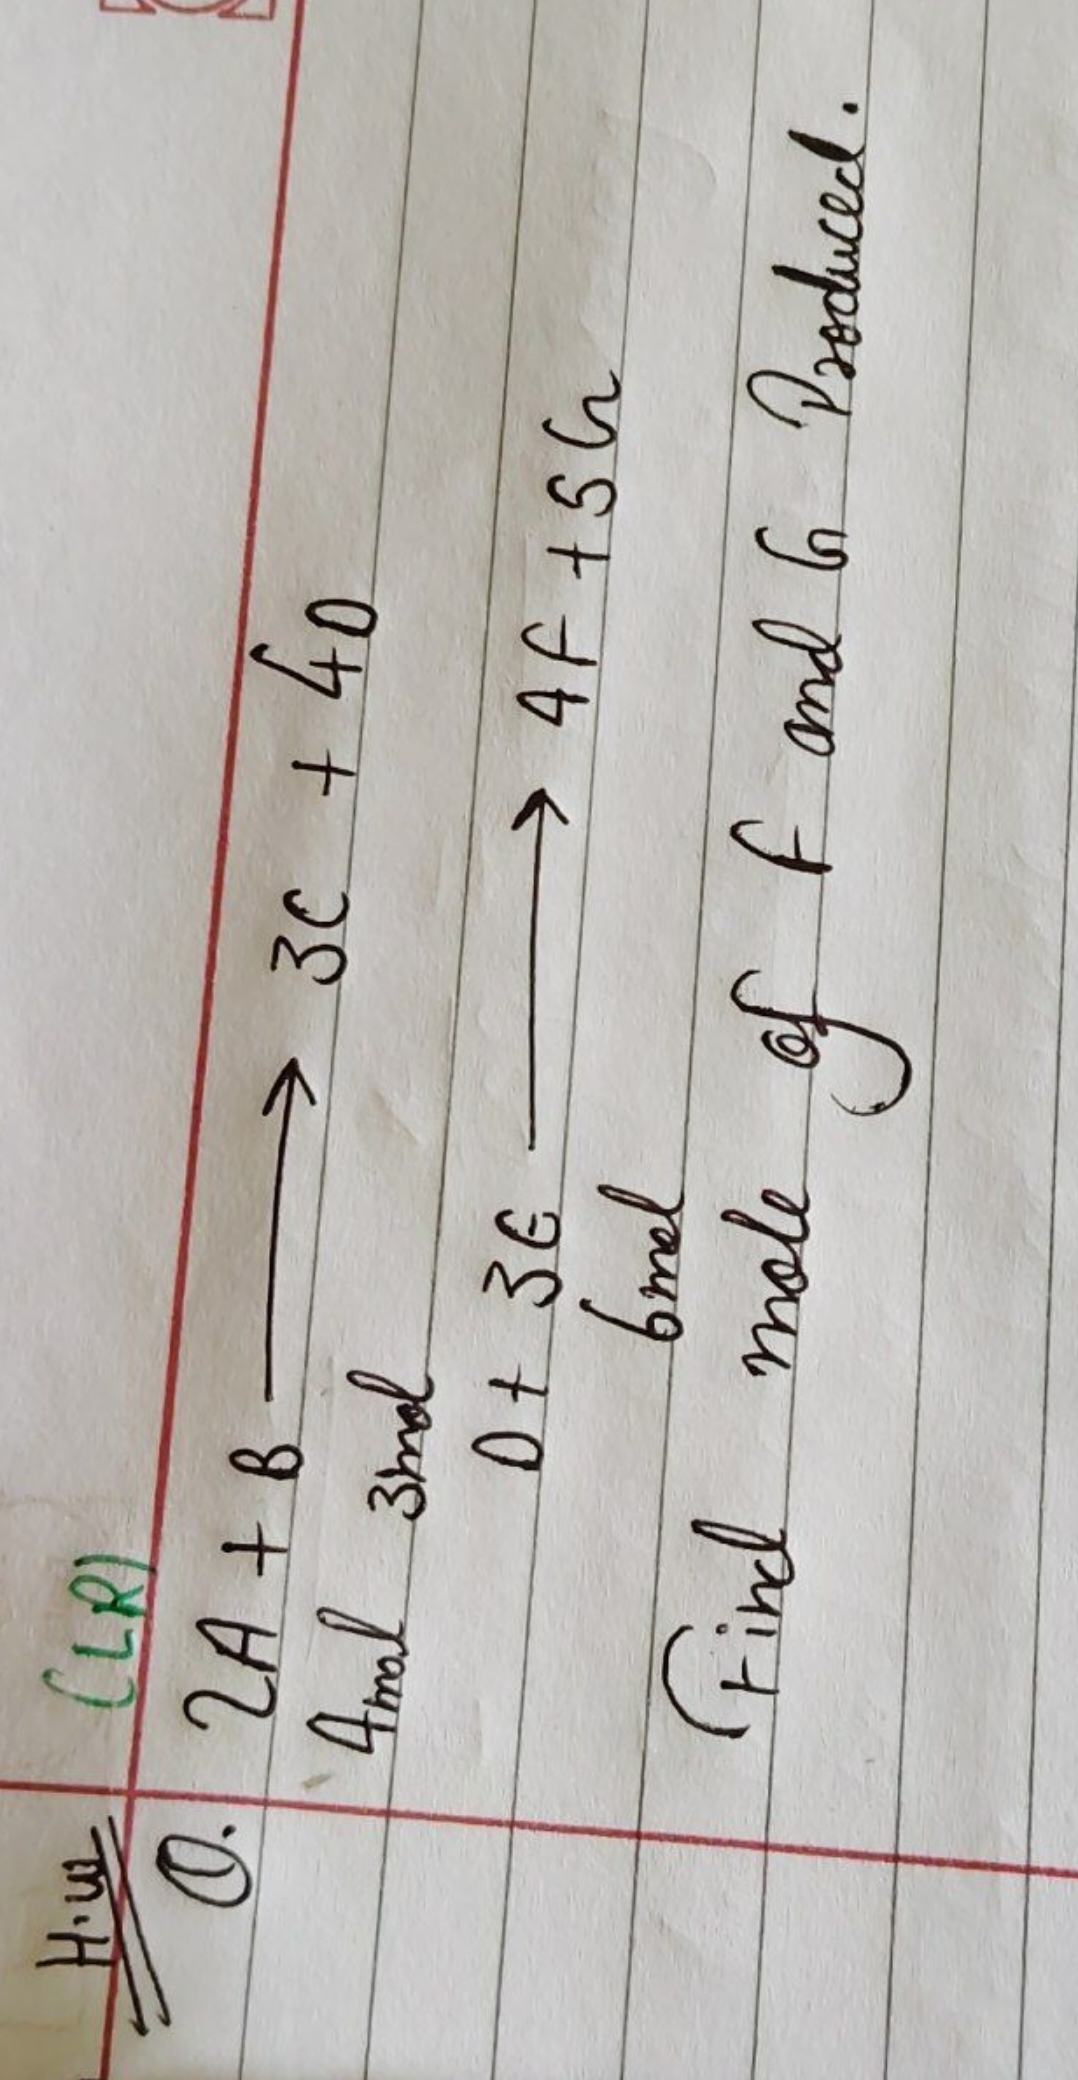 H.W (LR)
Q. 2A + B ⟶ 3C + 4D
4mol 3mol
D + 3E ⟶ 4F + 5G
6mol
Find mole of F and G Produced.